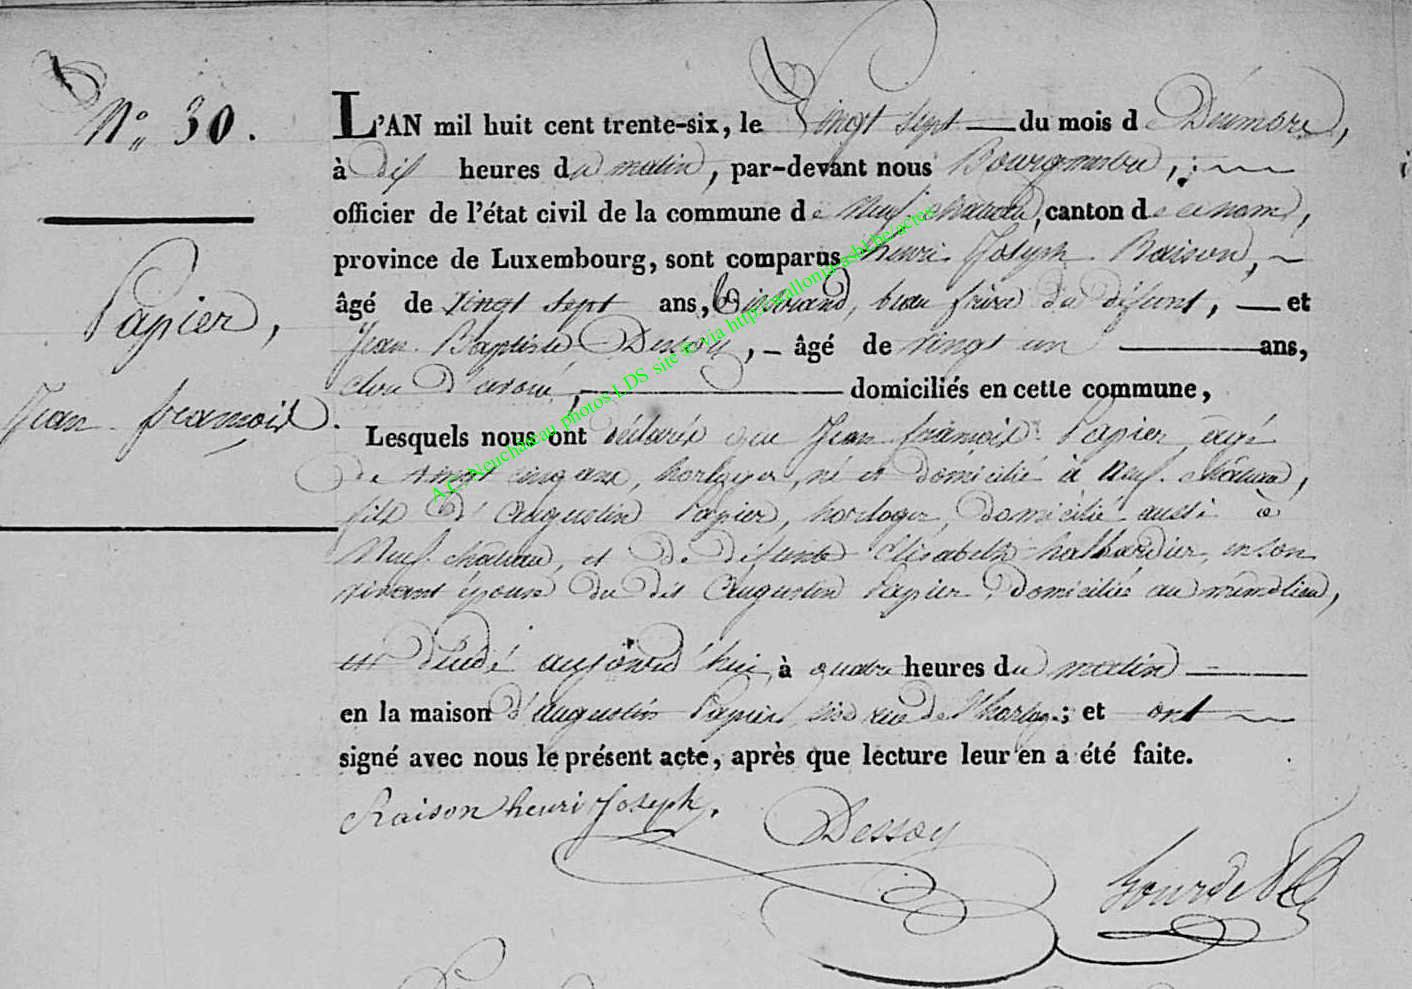 N° 30.
L'AN mil huit cent trente-six, le Vingt sept du mois de Décembre,
à dix heures du matin, par-devant nous Bourgmestre,
officier de l'état civil de la commune de Neufchateau, canton de ce nom,
province de Luxembourg, sont comparus henri Joseph Raison,
âgé de Vingt sept ans, beau frère du défunt, et
Jean Baptiste Dessoy, âgé de vingt un ans,
domiciliés en cette commune,
Papier,
Jean françois.
Lesquels nous ont déclaré que Jean françois Papier agé
de vingt cinq ans, horloger, né et domicilié à Neufchâteau,
fils d'Augustin Papier, horloger, domicilié aussi à
Neufchateau, et de défunte Elisabeth halbardier, en son
vivant épouse du dit Augustin Papier, domiciliés au même lieu,
est décédé aujourd'hui, à quatre heures du matin
en la maison d'augustin Papier, rue de l'horloge; et ont
signé avec nous le présent acte, après que lecture leur en a été faite.
Raison henri Joseph.
Dessoy
A.C. Neuchâteau photos LDS site et via http://wallonia-asbl.be/actes